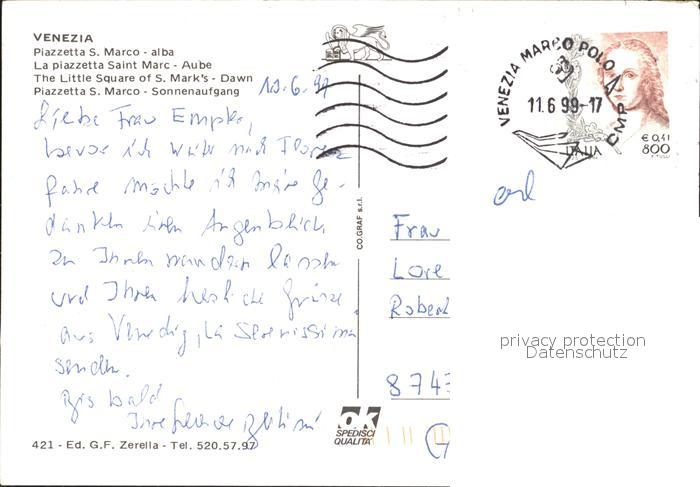 VENEZIA
Piazzetta S. Marco - alba
La piazzetta Saint Marc - Aube
The Little Square of S. Mark's - Dawn
Piazzetta S. Marco - Sonnenaufgang
10.6.99
Liebe Frau
bevor ich weiter nach Florenz
fahre möchte ich meine Ge-
danken einen Augenblick
zu Ihnen wandern lassen
und Ihnen herzliche Grüsse
aus Venedig, la Serenissima
senden.
Bis bald
Ihre
421 - Ed. G.F. Zerella - Tel. 520.57.97
CO.GRAF s.r.l.
ok
SPEDISCI
QUALITA'
VENEZIA MARCO POLO A
CMP
11.6 99-17
ITALIA
€ 0,41
800
Frau
Lore
Robert
8743
privacy protection
Datenschutz